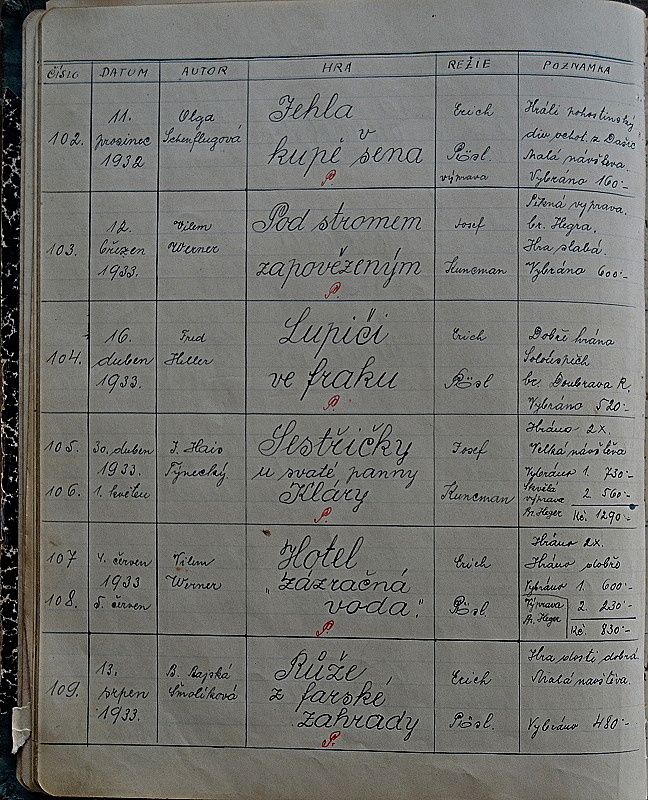 ČÍSLO DATUM AUTOR HRA REŽIE POZNÁMKA
102. 11. prosinec 1932 Olga Scheinflugová Jehla v kupé sena P. Erich Rösl. výprava Hráli pohostinsky div. ochot. z Dašic
Malá návštěva.
Vybráno 160·-
103. 12. březen 1933. Vilem Werner Pod stromem zapovězeným P. Josef Kuncman Pěkná výprava.
br. Hegra.
Hra slabá.
Vybráno 600·-
104. 16. duben 1933. Fred Heller Lupiči ve fraku P. Erich Rösl Dobře hrána
br. Doubrava R.
Vybráno 520·-
105. 30. duben 1933. J. Hais Týnecký. Sestřičky u svaté panny Kláry P. Josef Kuncman Hráno 2x.
106. 1. květen Velká návštěva
Vybráno 1. 730·-
Skvělá výprava 2. 560·-
Br. Heger Kč. 1290·-
107 4. červen 1933 Vilem Werner Hotel "zázračná voda". P. Erich Rösl. Hráno 2x.
108. 5. červen Hráno dobře
Vybráno 1. 600·-
Výprava 2. 230·-
Br. Heger Kč. 830·-
109. 13. srpen 1933. B. Rajská Smolíková Růže z farské zahrady P. Erich Rösl. Hra dosti dobrá.
Malá návštěva.
Vybráno 480·-